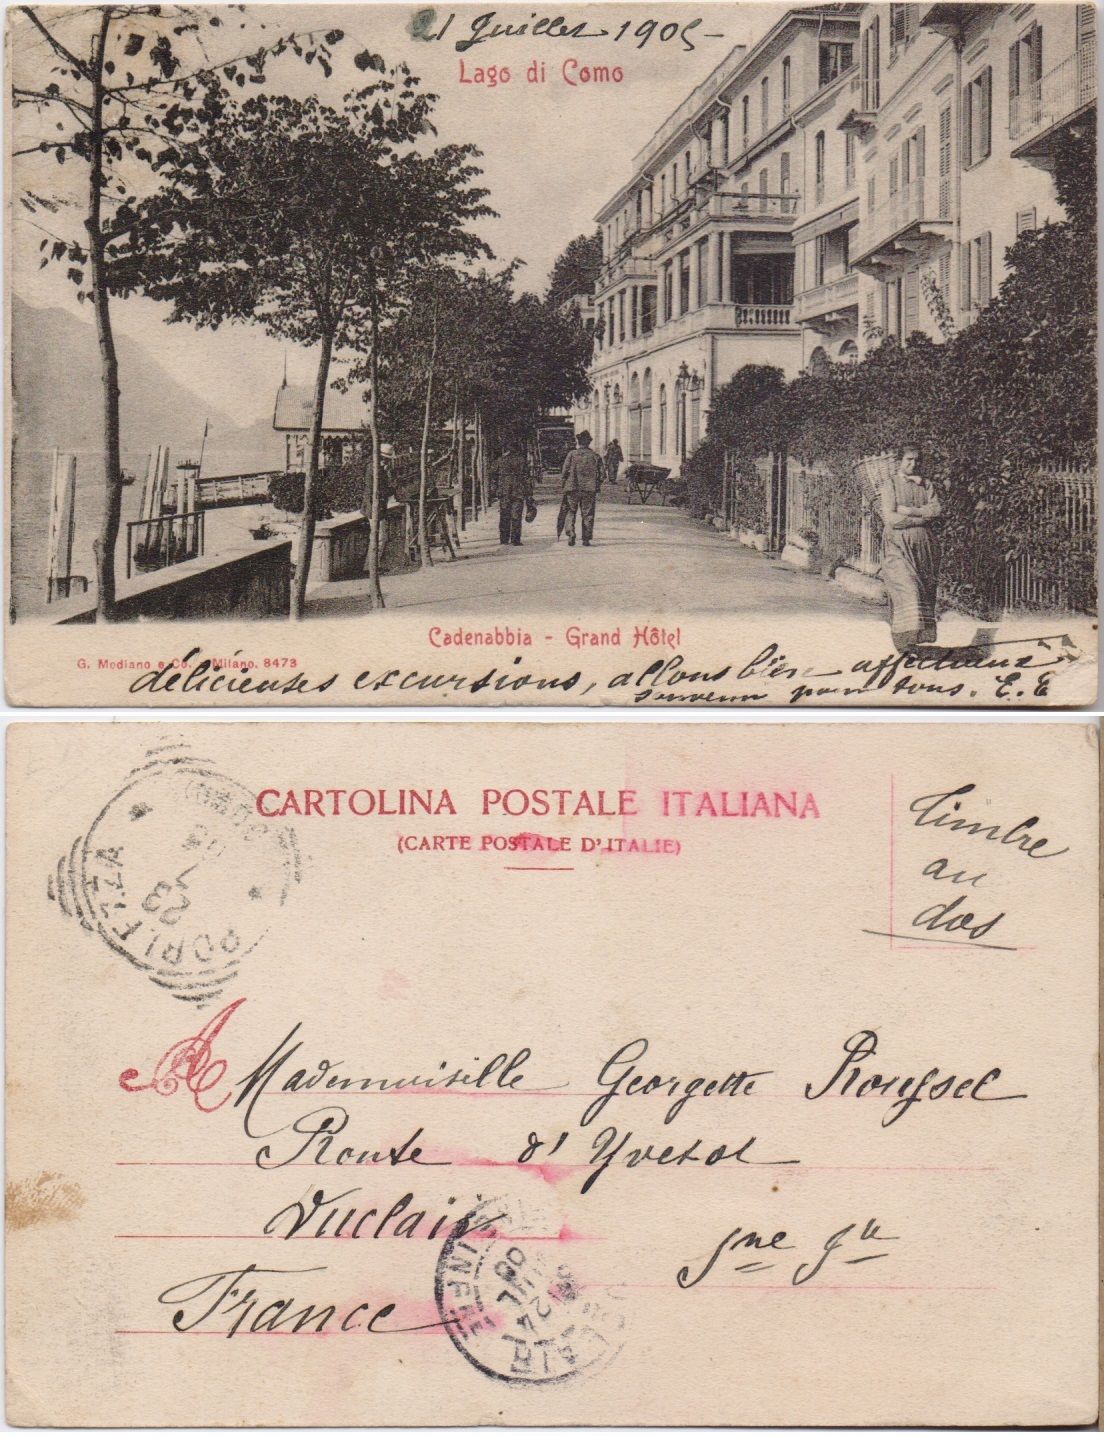 21 Juillet 1905 -
Lago di Como
Cadenabbia - Grand Hôtel
G. Modiano e Co. - Milano. 8473
délicieuses excursions, allons bien affectueux
souvenir pour tous. E. E
CARTOLINA POSTALE ITALIANA
(CARTE POSTALE D'ITALIE)
Timbre
au
dos
PORLEZZA
(COMO)
23
A Mademoiselle Georgette Roussel
Route d'Yvetot
Duclair
Sne Ire
France
DUCLAIR
24
JUIL